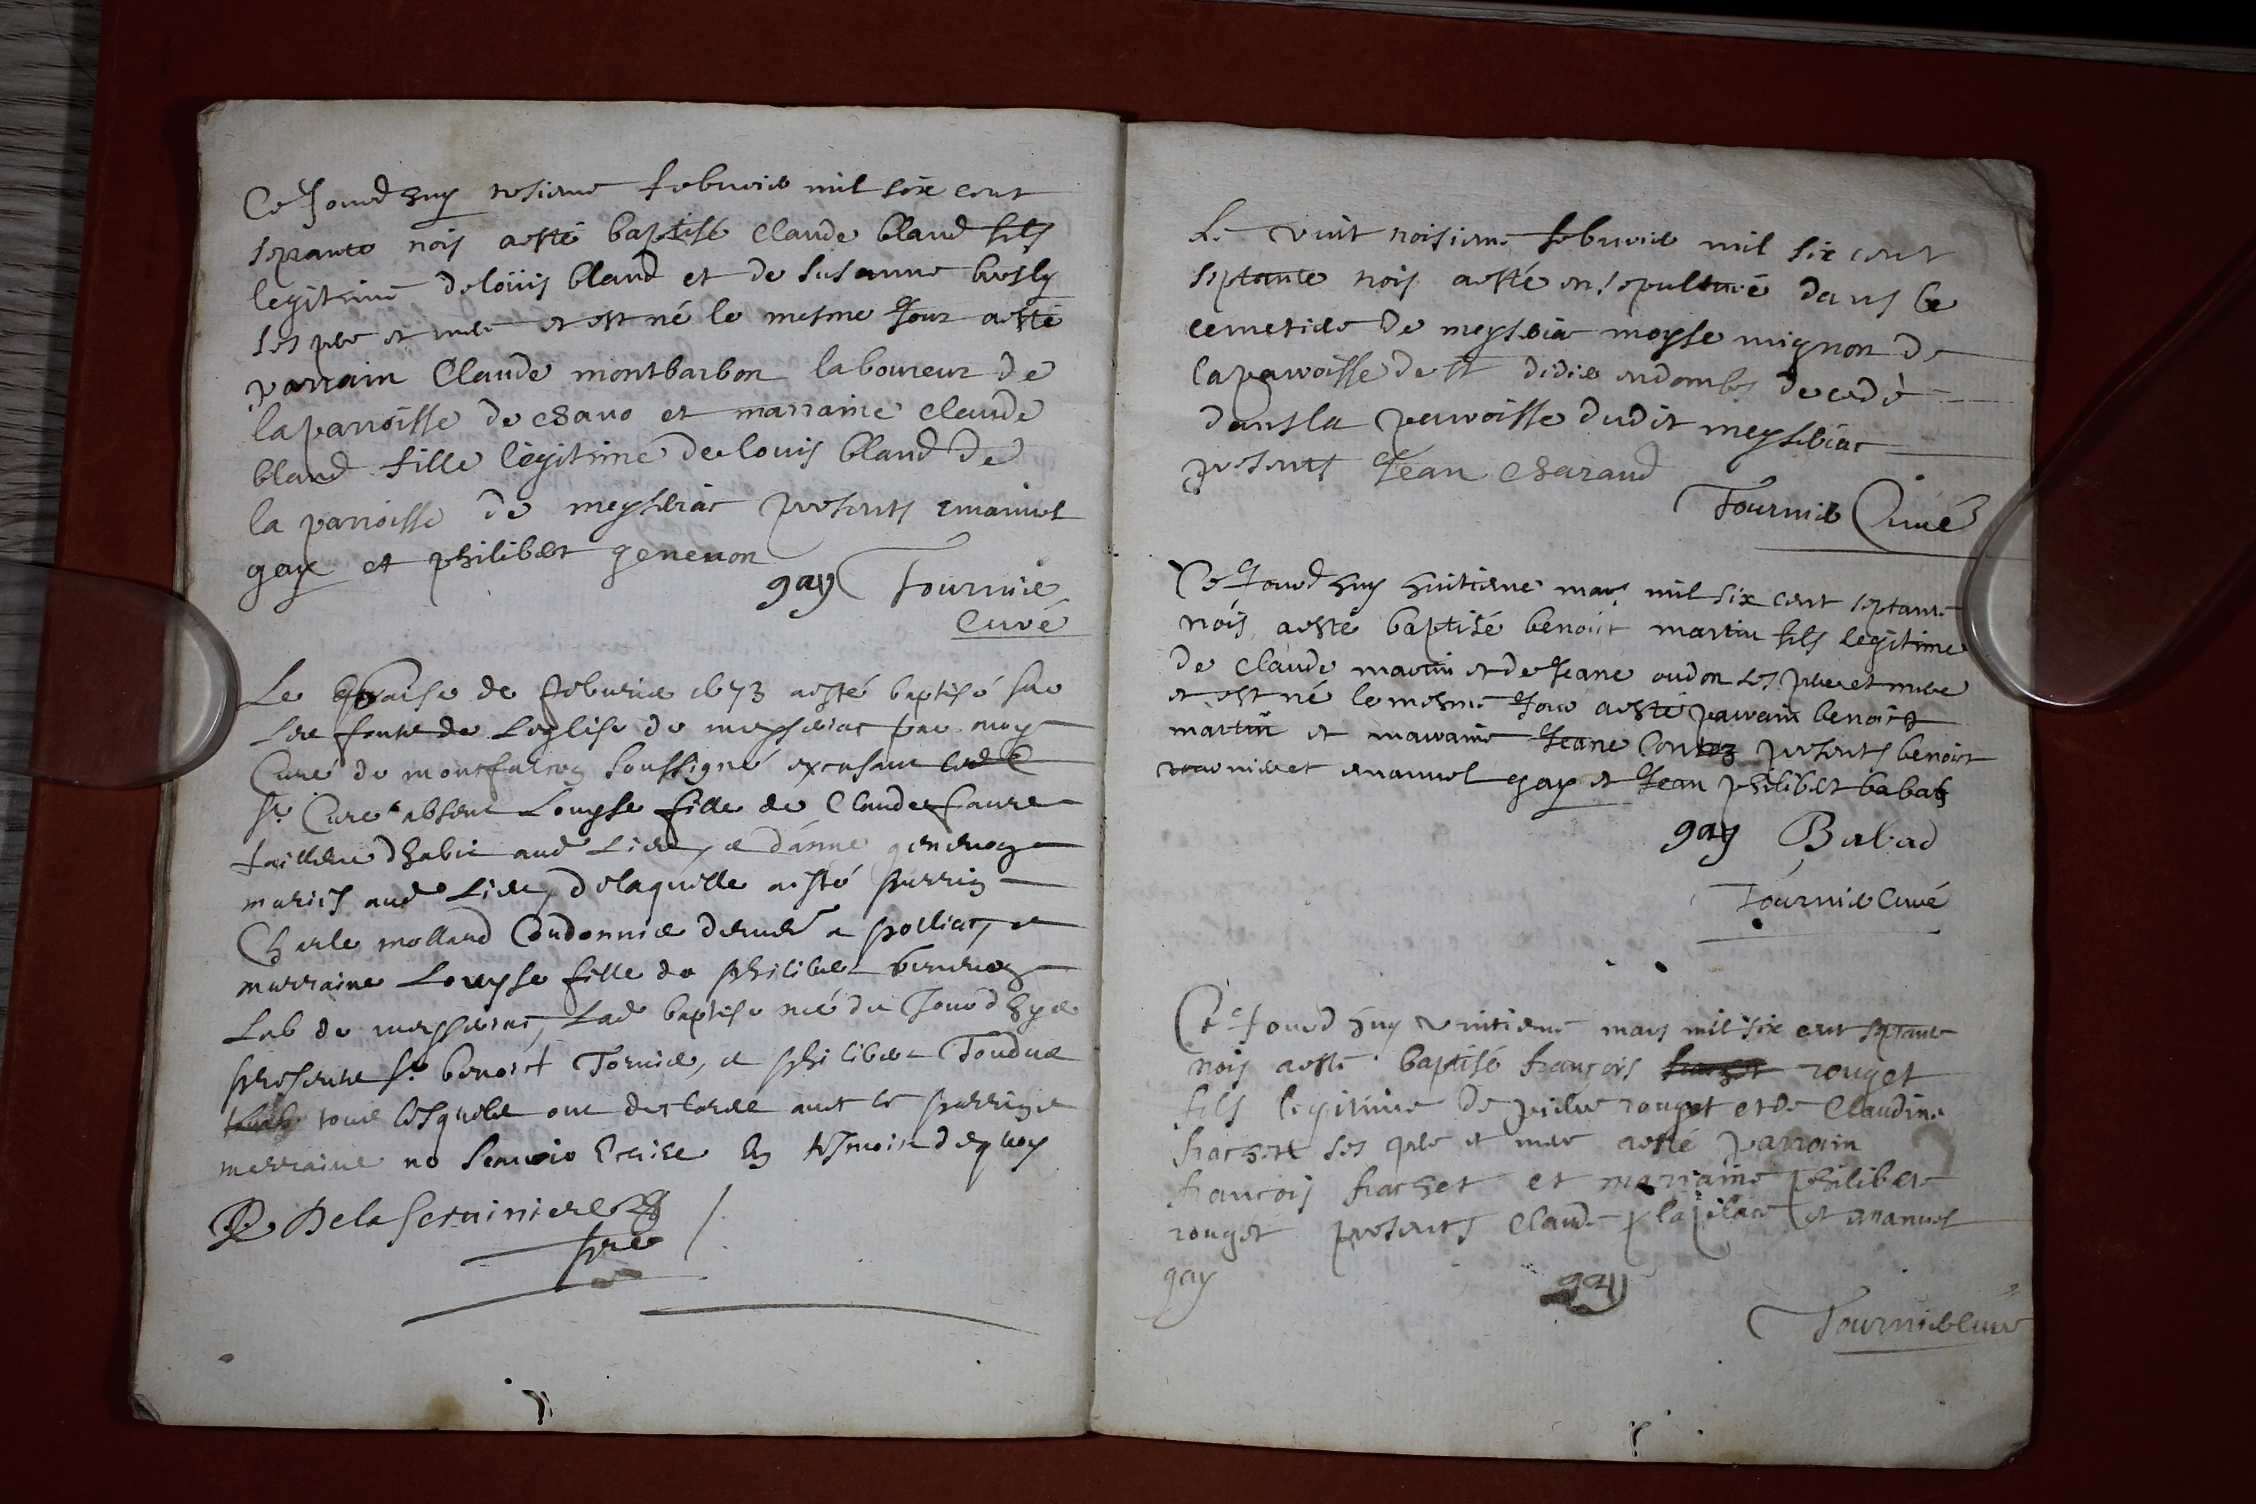 Ce Jourdhuy troisieme febvrier mil six cent
septante trois a esté baptisé Claude bland fils
legitime de loüis bland et de Susanne brosly
ses pere et mere et est né le mesme Jour a esté
parrain Claude montbarbon laboureur de
la parroisse de chano et marraine claude
bland fille legitime de louis bland de
la parroisse de meyseriac presents emanuel
gay et philibert genevon
gay Tournier
Curé
Le de febvrier 1673 a esté baptisé sur
les fonts de Leglise de meyseriac par moy
Curé de montfalcon soussigné excusant
Sr Curé absent Louyse fille de Claude faure
tailleur dhabit aud Lieu, et d'anne genevoy
mariés aud Lieu, de laquelle a esté parrin
Charle mollard Cordonnier demeur a polliat, et
marraine Louyse fille de philibert
Lab de meyseriac, Lad baptisé né du Jourdhyer
presents Sr benoist Tornier, et philibert Tondue
tous lesquels ont declarer avec le parrin et
merraine ne scavoir Ecrire En tesmoin dequoy
R De la Serviniere
pre
Le vint troisieme febvrier mil six cent
septante trois a esté ensepulturé dans le
cemetiere de meyseria moyse mignon de
la parroisse de st didier en dombes decedé
dans la parroisse dudit meyseriac
presents Jean Charaud
Tournier Curé
Ce Jourdhuy huitieme mars mil six cent septante
trois a esté baptisé benoist martin fils legitime
de Claude martin et de Jeane oudon ses pere et mere
et est né le mesme Jour a esté parrain benoist
martin et marraine Jeane presents benoist
tournier et emanuel gay et Jean philibert babad
gay Babad
Tournier Curé
Ce Jourdhuy vintieme mars mil six cent septante
trois a esté baptisé françois rouget
fils legitime de pierre rouget et de Claudine
frachet ses pere et mere a esté parrain
francois frachet et marraine philiberte
rouget presents Claude lapelace et emanuel
gay
gay
Tournier Curé